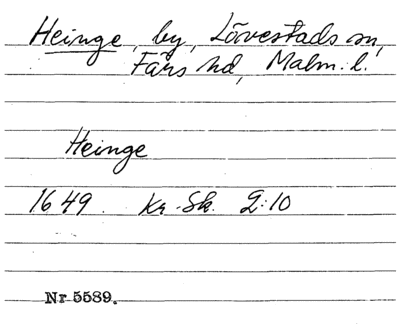 Heinge, by, Lövestads sn,
Färs hd, Malm. l.
Heinge
1649. Kr. Sk. 2:10
Nr 5589.